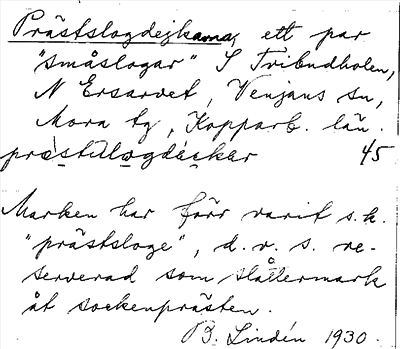 Prästslogdejkarna, ett par
"småslogar" S Tvibudholen,
N Ersarvet, Venjans sn,
Mora tg, Kopparb. län.
præstulogdäɩkar 45
Marken har förr varit s.k.
"prästsloge", d.v.s. re-
serverad som slåttermark
åt sockenprästen.
B. Lindén 1930.